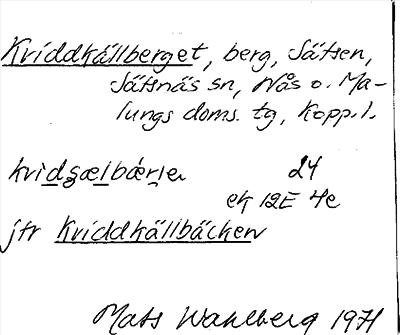 Kviddkällberget, berg, Sätsen,
Jätsnäs sn, Nås o. Ma-
lungs doms. tg, Kopp. l.
kvidʒælbǽrjer 24
ek 12E 4e
jfr Kviddkällbäcken
Mats Wahlberg 1971